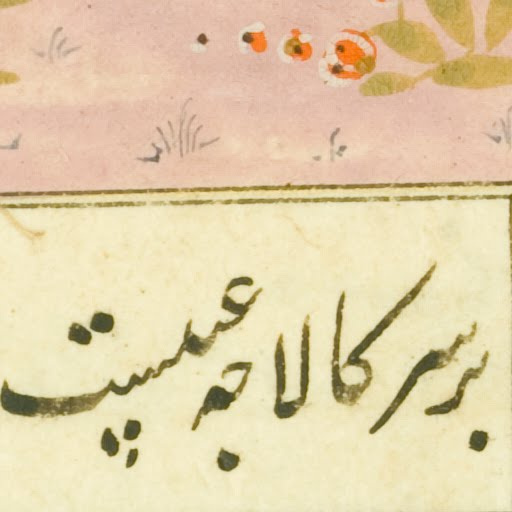 بر سر کالا جه عیبست